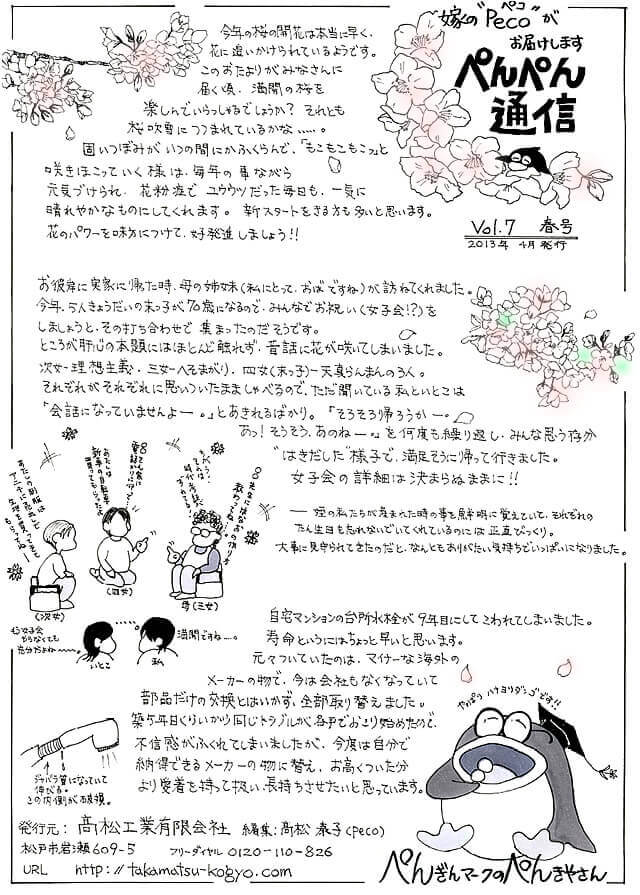 嫁の"Peco"が
ペコ
お届けします
ぺんぺん
通信
Vol.7 春号
2013年 4月発行
今年の桜の開花は本当に早く、
花に追いかけられているようです。
このおたよりがみなさんに
届く頃、満開の桜を
楽しんでいらっしゃるでしょうか? それとも
桜吹雪につつまれているかな……。
固いつぼみがいつの間にかふくらんで、「もこもこもこっ」と
咲きほこっていく様は、毎年の事ながら
元気づけられ、花粉症でユウウツだった毎日も、一気に
晴れやかなものにしてくれます。新スタートをきる方も多いと思います。
花のパワーを味方につけて、好発進しましょう!!
お彼岸に実家に帰った時、母の姉妹(私にとって、おばですね)が訪ねてくれました。
今年、5人きょうだいの末っ子が70歳になるので、みんなでお祝い(女子会!?)を
しましょうと、その打ち合わせで集まったのだそうです。
ところが肝心の本題にはほとんど触れず、昔話に花が咲いてしまいました。
次女―理想主義・三女―へそまがり、四女(末っ子)―天真らんまんの3人。
それぞれがそれぞれに思いついたまましゃべるので、ただ聞いている私といとこは
「会話になっていませんよー。」とあきれるばかり。「そろそろ帰ろうかー。
あっ!そうそう、あのねー。」を何度も繰り返し、みんな思う存分
"はきだした"様子で、満足そうに帰って行きました。
女子会の詳細は決まらぬままに!!
(次女)
(四女)
母(三女)
もう女子会
やらなくても
充分だよねー
いとこ
私
満開ですねー。
― 姪の私たちが産まれた時の事を鮮明に覚えていて、それぞれの
たん生日も忘れないでいてくれているのには正直びっくり。
大事に見守られてきたのだと、なんともありがたい気持ちでいっぱいになりました。
自宅マンションの台所水栓が9年目にしてこわれてしまいました。
寿命というにはちょっと早いと思います。
元々ついていたのは、マイナーな海外の
メーカーの物で、今は会社もなくなっていて
部品だけの交換とはいかず、全部取り替えました。
築5年目くらいから同じトラブルが各戸でおこり始めたので、
不信感がふくれてしまいましたが、今度は自分で
納得できるメーカーの物に替え、お高くついた分
より愛着を持って扱い、長持ちさせたいと思っています。
ジャバラ管になっていて
伸びる。
この内側が破損。
やっぱりハナヨリダンゴです!!
発行元: 髙松工業有限会社 編集:髙松 泰子(peco)
松戸市岩瀬609-5 フリーダイヤル 0120-110-826
URL http://takamatsu-kogyo.com
ぺんぎんマークのぺんきやさん